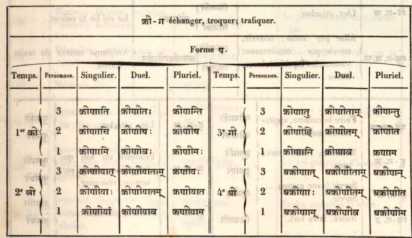 क्री-ग échanger, troquer; trafiquer.
Forme प.
Temps. Personnes. Singulier. Duel. Pluriel. Temps. Personnes. Singulier. Duel. Pluriel.
3 क्रीणाति क्रीणीतः क्रीणन्ति 3 क्रीणातु क्रीणीताम् क्रीणन्तु
1er की 2 क्रीणासि क्रीणीथः क्रीणीथ 3e गी 2 क्रीणीहि क्रीणीतम् क्रीणीत
1 क्रीणामि क्रीणीवः क्रीणीमः 1 क्रीणानि क्रीणाव क्रीणाम
3 क्रीणीयात् क्रीणीयाताम् 3 अक्रीणात् अक्रीणीताम् अक्रीणन्
2e 2 क्रीणीयाः क्रीणीयातम् क्रीणीयात 4e 2 अक्रीणाः अक्रीणीतम् अक्रीणीत
1 क्रीणीयां क्रीणीयाव क्रीणीयाम 1 अक्रीणाम् अक्रीणीव अक्रीणीम